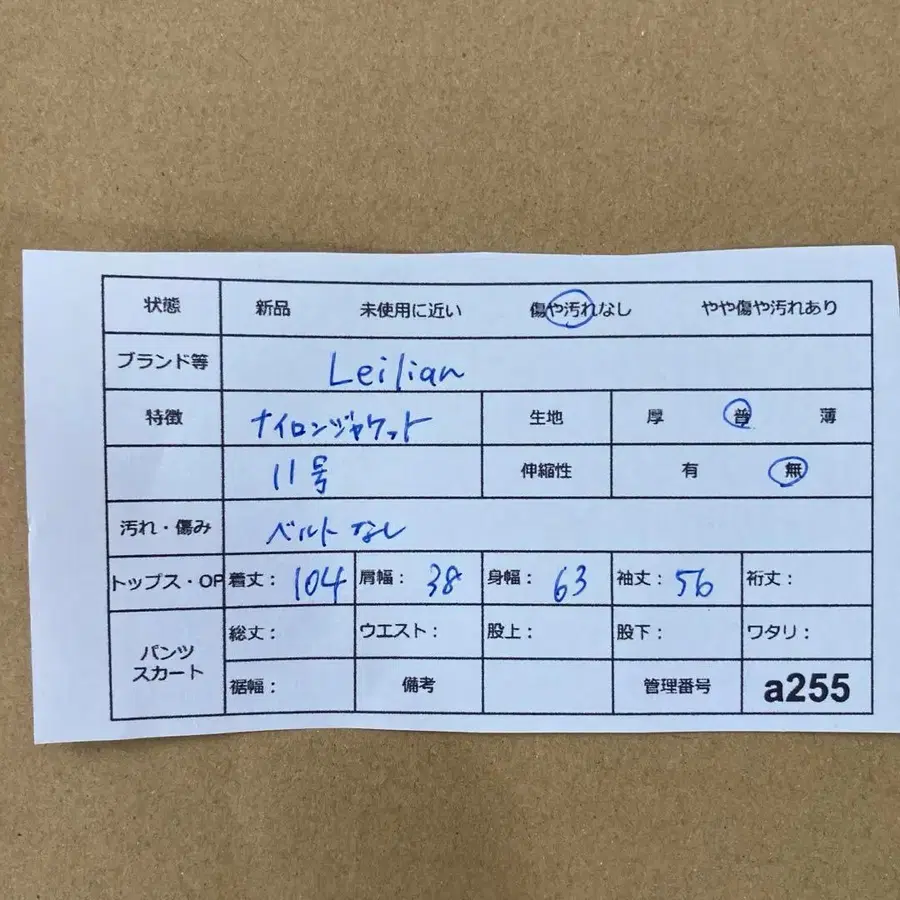 状態 新品 未使用に近い 傷や汚れなし やや傷や汚れあり
ブランド等 Leilian
特徴 ナイロンジャケット 生地 厚 普 薄
11号 伸縮性 有 無
汚れ・傷み ベルトなし
トップス・OP 着丈： 104 肩幅： 38 身幅： 63 袖丈： 56 裄丈：
パンツ 総丈： ウエスト： 股上： 股下： ワタリ：
スカート 裾幅： 備考 管理番号 a255